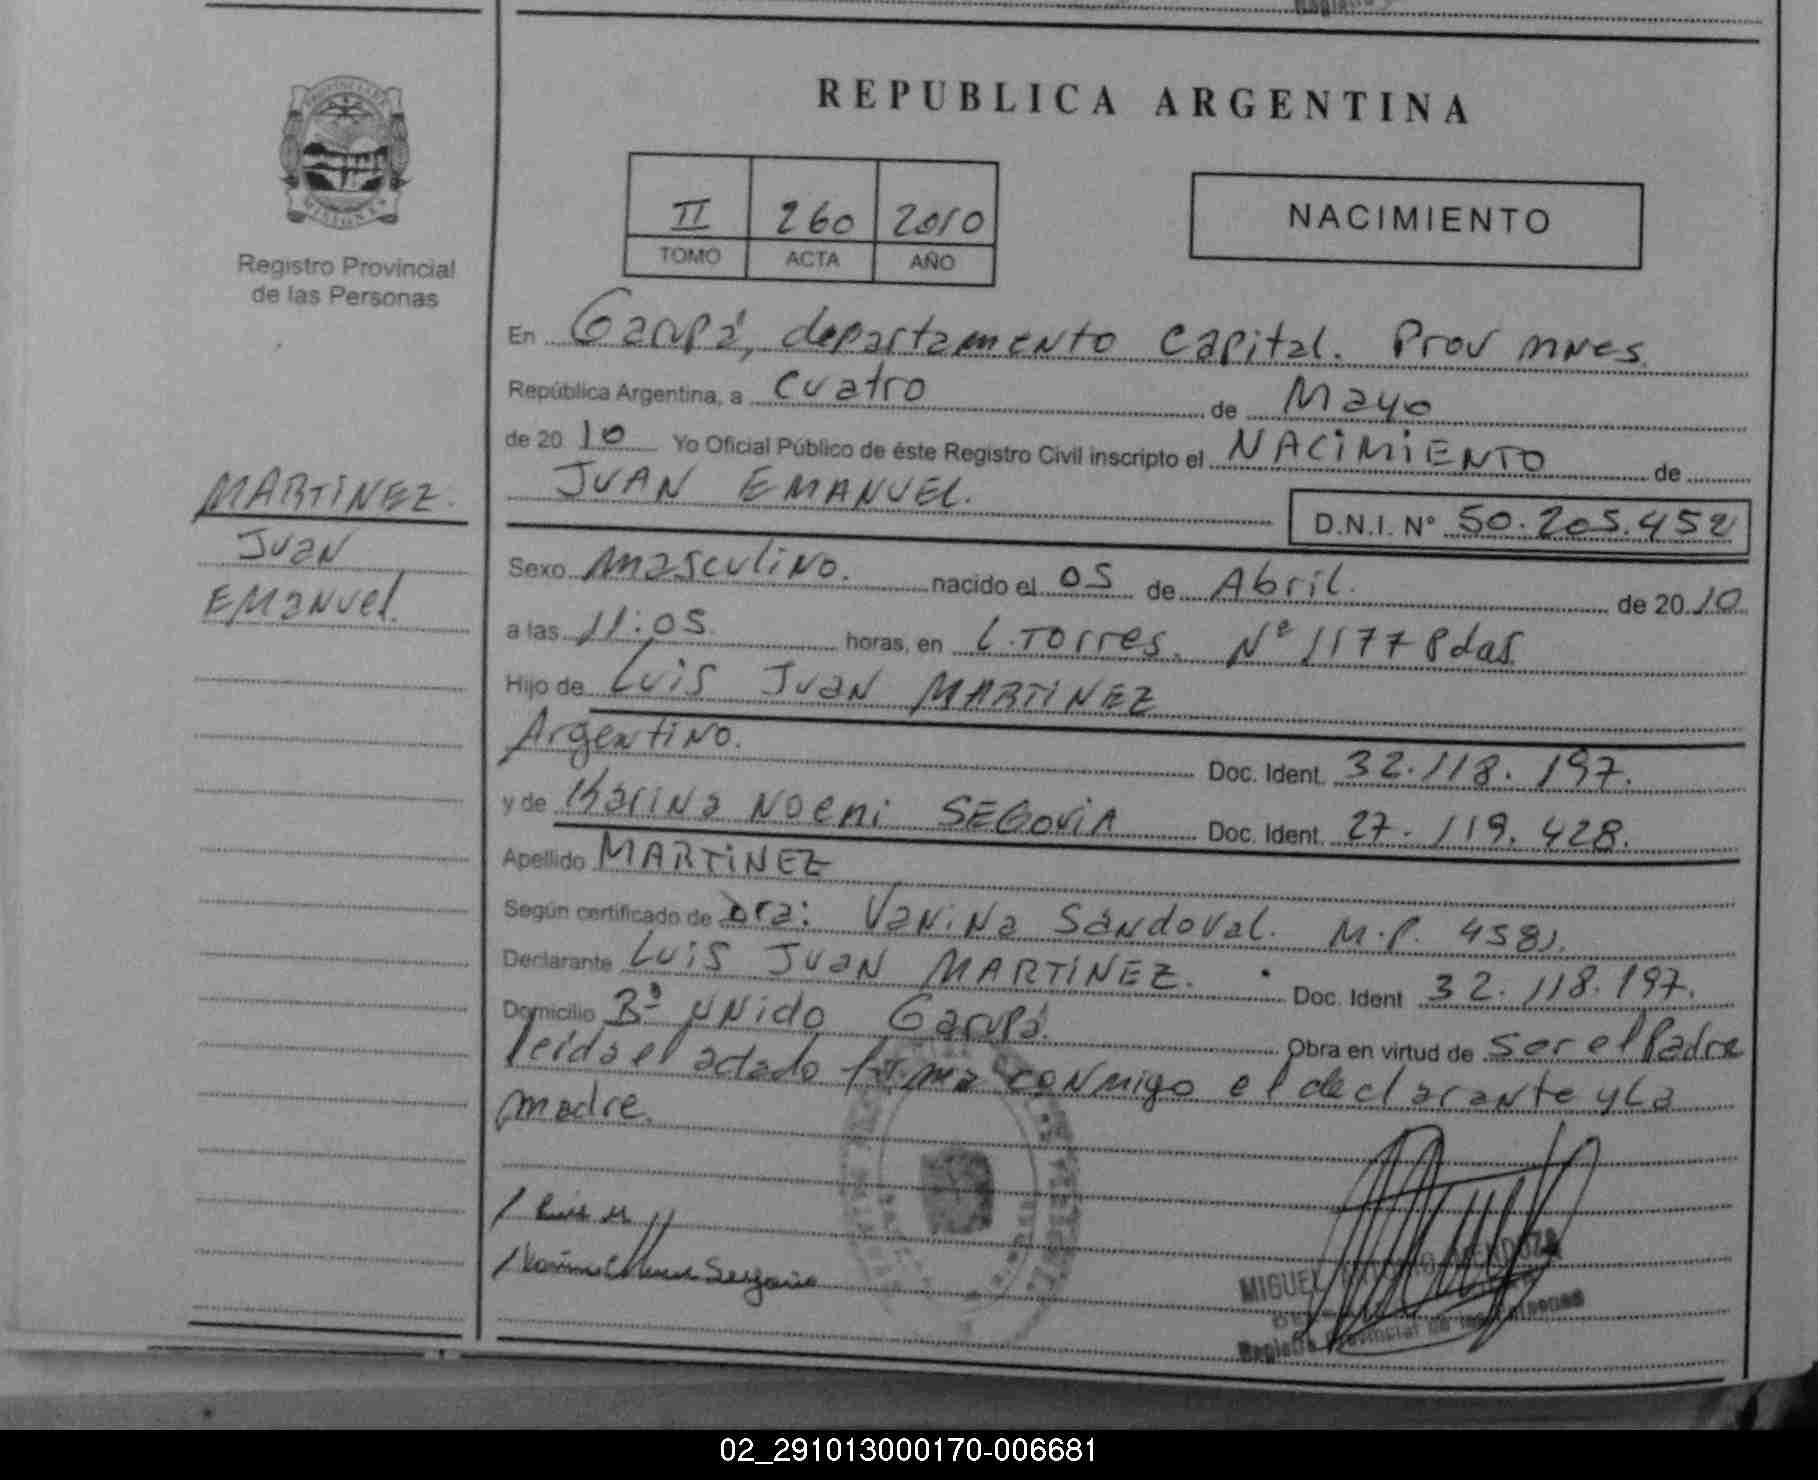 REPUBLICA ARGENTINA
PROVINCIA DE
MISIONES
Registro Provincial
de las Personas
II 260 2010
TOMO ACTA AÑO
NACIMIENTO
En Garupá, departamento Capital. Prov mnes.
República Argentina, a cuatro de Mayo
de 20 10 Yo Oficial Público de éste Registro Civil inscripto el NACIMIENTO de
JUAN EMANUEL.
D.N.I. N° 50.205.452
MARTINEZ.
Juan
EMANUel.
Sexo masculino. nacido el 05 de Abril. de 20 10
a las 11:05. horas, en L. Torres. N° 1177 Pdas.
Hijo de Luis Juan MARTINEZ
Argentino. Doc. Ident. 32.118.197.
y de Karina Noemi SEGOVIA Doc. Ident. 27.119.428.
Apellido MARTINEZ
Según certificado de Dra: Vanina Sandoval. M.P. 4581.
Declarante Luis Juan MARTINEZ. Doc. Ident 32.118.197.
Domicilio B° Unido Garupá. Obra en virtud de ser el Padre
leida el acta do firma conmigo el declarante y La
madre.
MIGUEL MENDOZA
Registro Provincial de las Personas
02_291013000170-006681